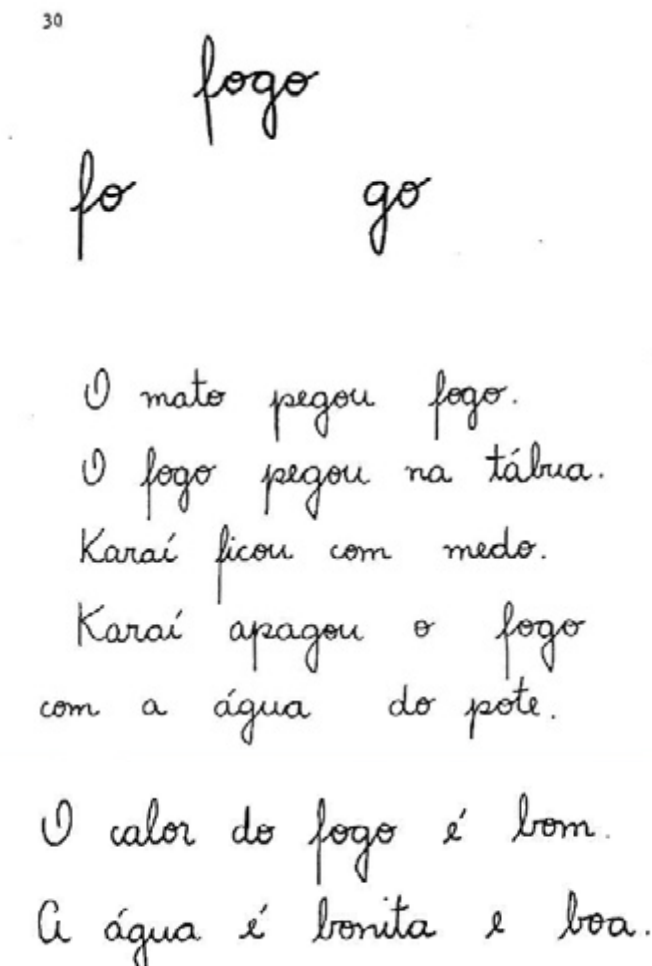 30
fogo
fo go
O mato pegou fogo.
O fogo pegou na tábua.
Karaí ficou com medo.
Karaí apagou o fogo
com a água do pote.
O calor do fogo é bom.
A água é bonita e boa.